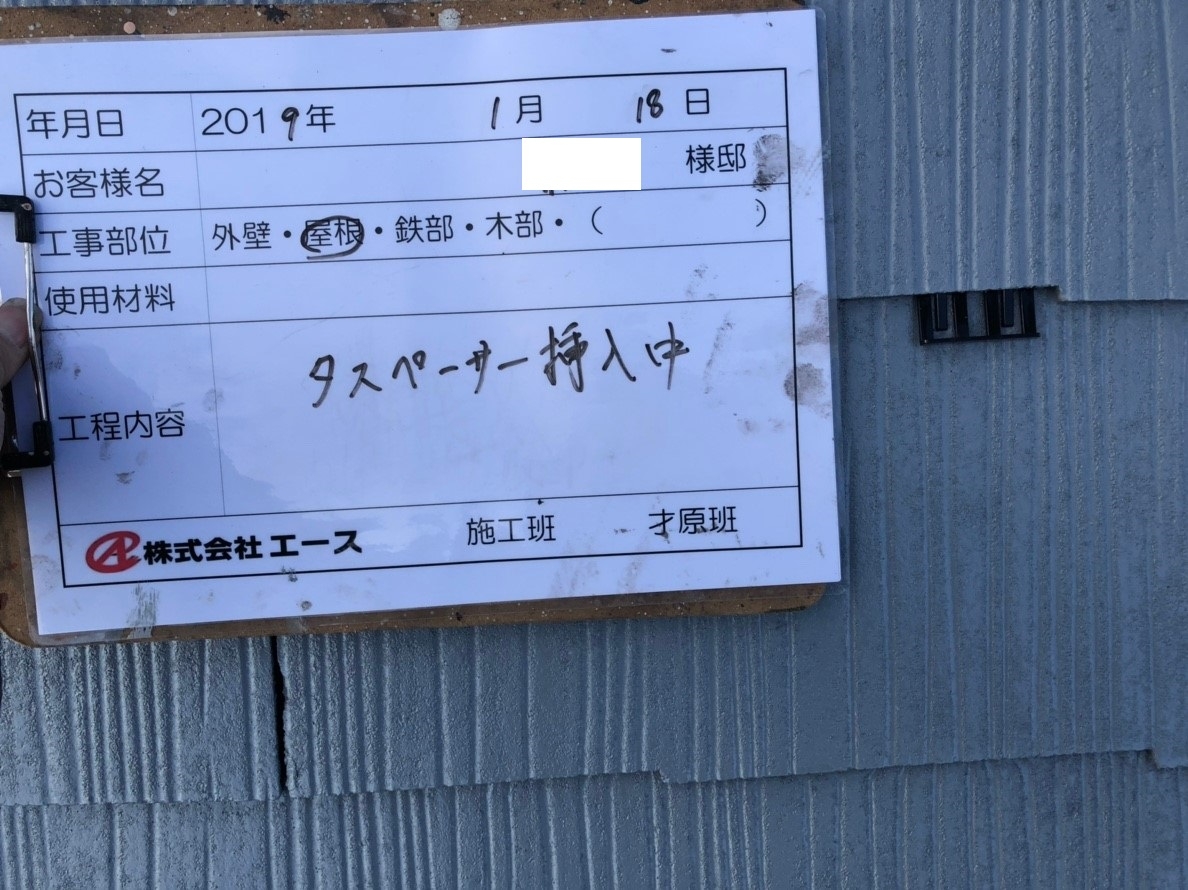 年月日 2019年 1月 18日
お客様名 様邸
工事部位 外壁・屋根・鉄部・木部・( )
使用材料
工程内容 タスペーサー挿入中
株式会社エース 施工班 才原班